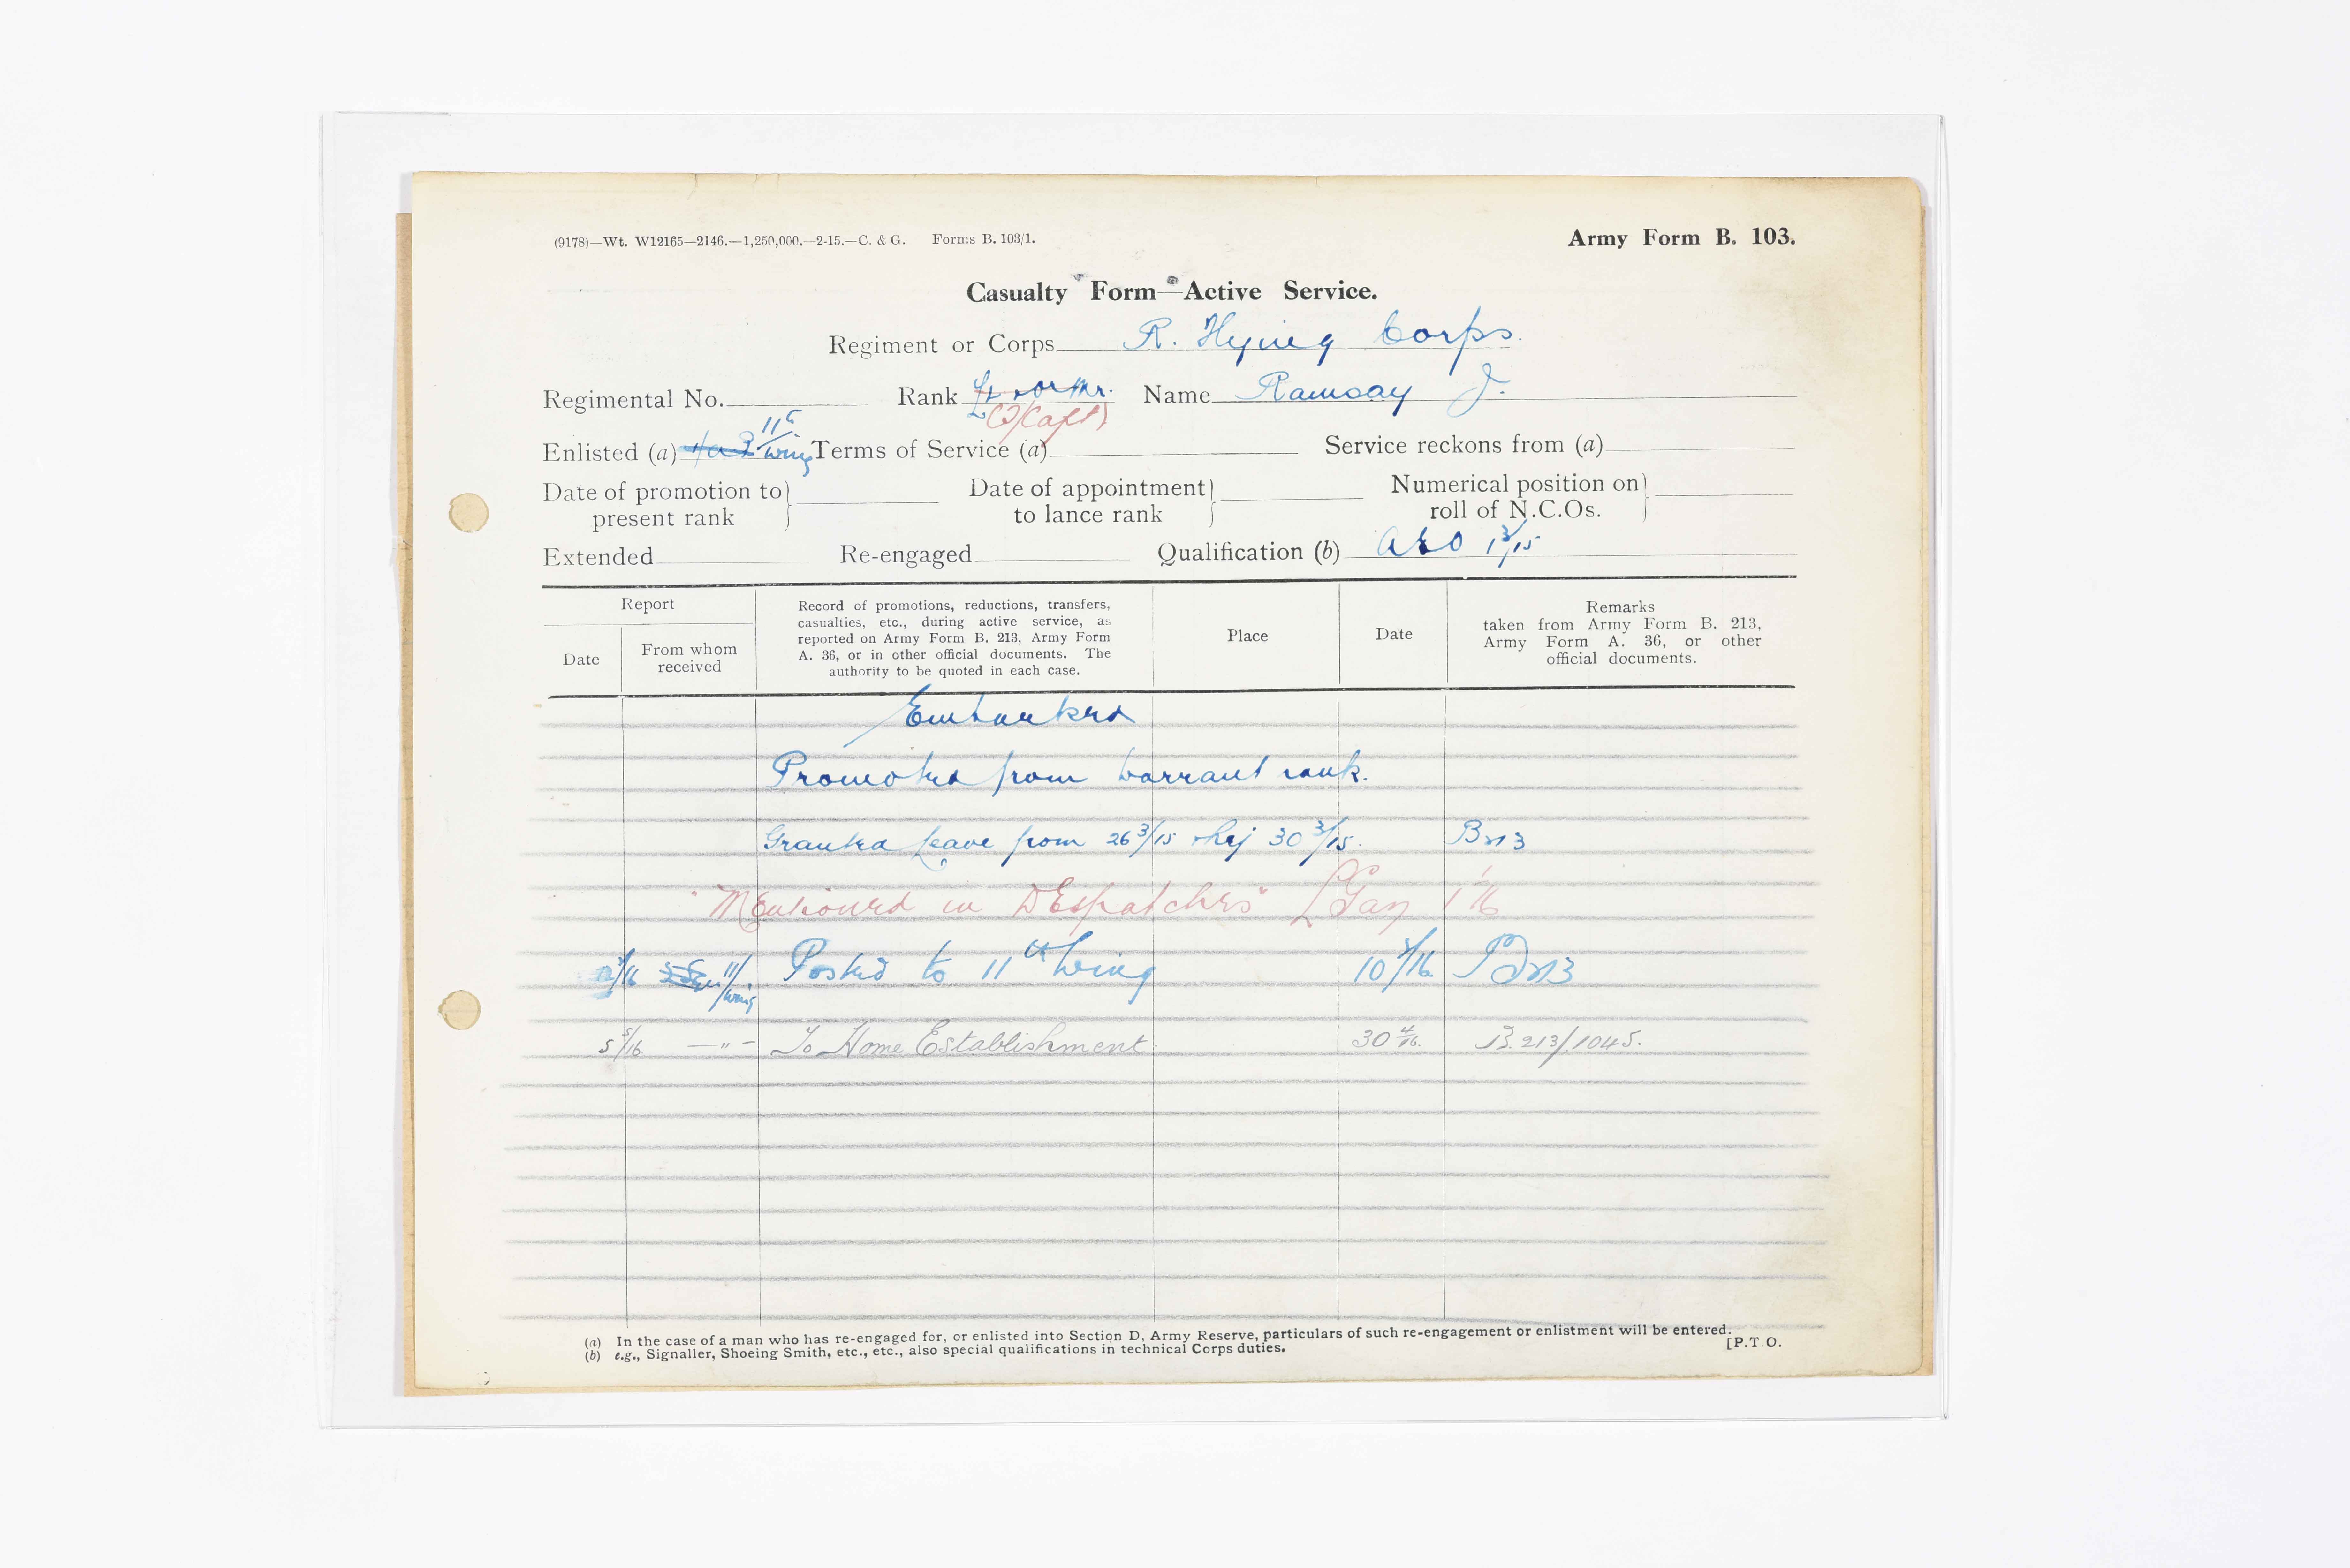 (9178)—Wt. W12165—2146.—1,250,000.—2-15.—C. & G. Forms B. 103/1.
Army Form B. 103.
Casualty Form—Active Service.
Regiment or Corps R. Flying Corps.
Regimental No. Rank Lt & Qr Mr. Name Ramsay J.
(T/Capt)
Enlisted (a) 11th Wing Terms of Service (a) Service reckons from (a)
Date of promotion to present rank Date of appointment to lance rank Numerical position on roll of N.C.Os.
Extended Re-engaged Qualification (b) AEO 1 3/15
Report
Date
From whom received
Record of promotions, reductions, transfers, casualties, etc., during active service, as reported on Army Form B. 213, Army Form A. 36, or in other official documents. The authority to be quoted in each case.
Place
Date
Remarks
taken from Army Form B. 213, Army Form A. 36, or other official documents.
Embarked
Promoted from Warrant rank.
Granted leave from 26 3/15 30 3/15. B213
"Mentioned in DEspatches" LGaz 1 1/16
3/16 11/Wing Posted to 11th Wing 10 3/16 B213
5/16 —"— To Home Establishment. 30 4/16. B.213/1045.
(a) In the case of a man who has re-engaged for, or enlisted into Section D, Army Reserve, particulars of such re-engagement or enlistment will be entered.
(b) e.g., Signaller, Shoeing Smith, etc., etc., also special qualifications in technical Corps duties.
[P.T.O.